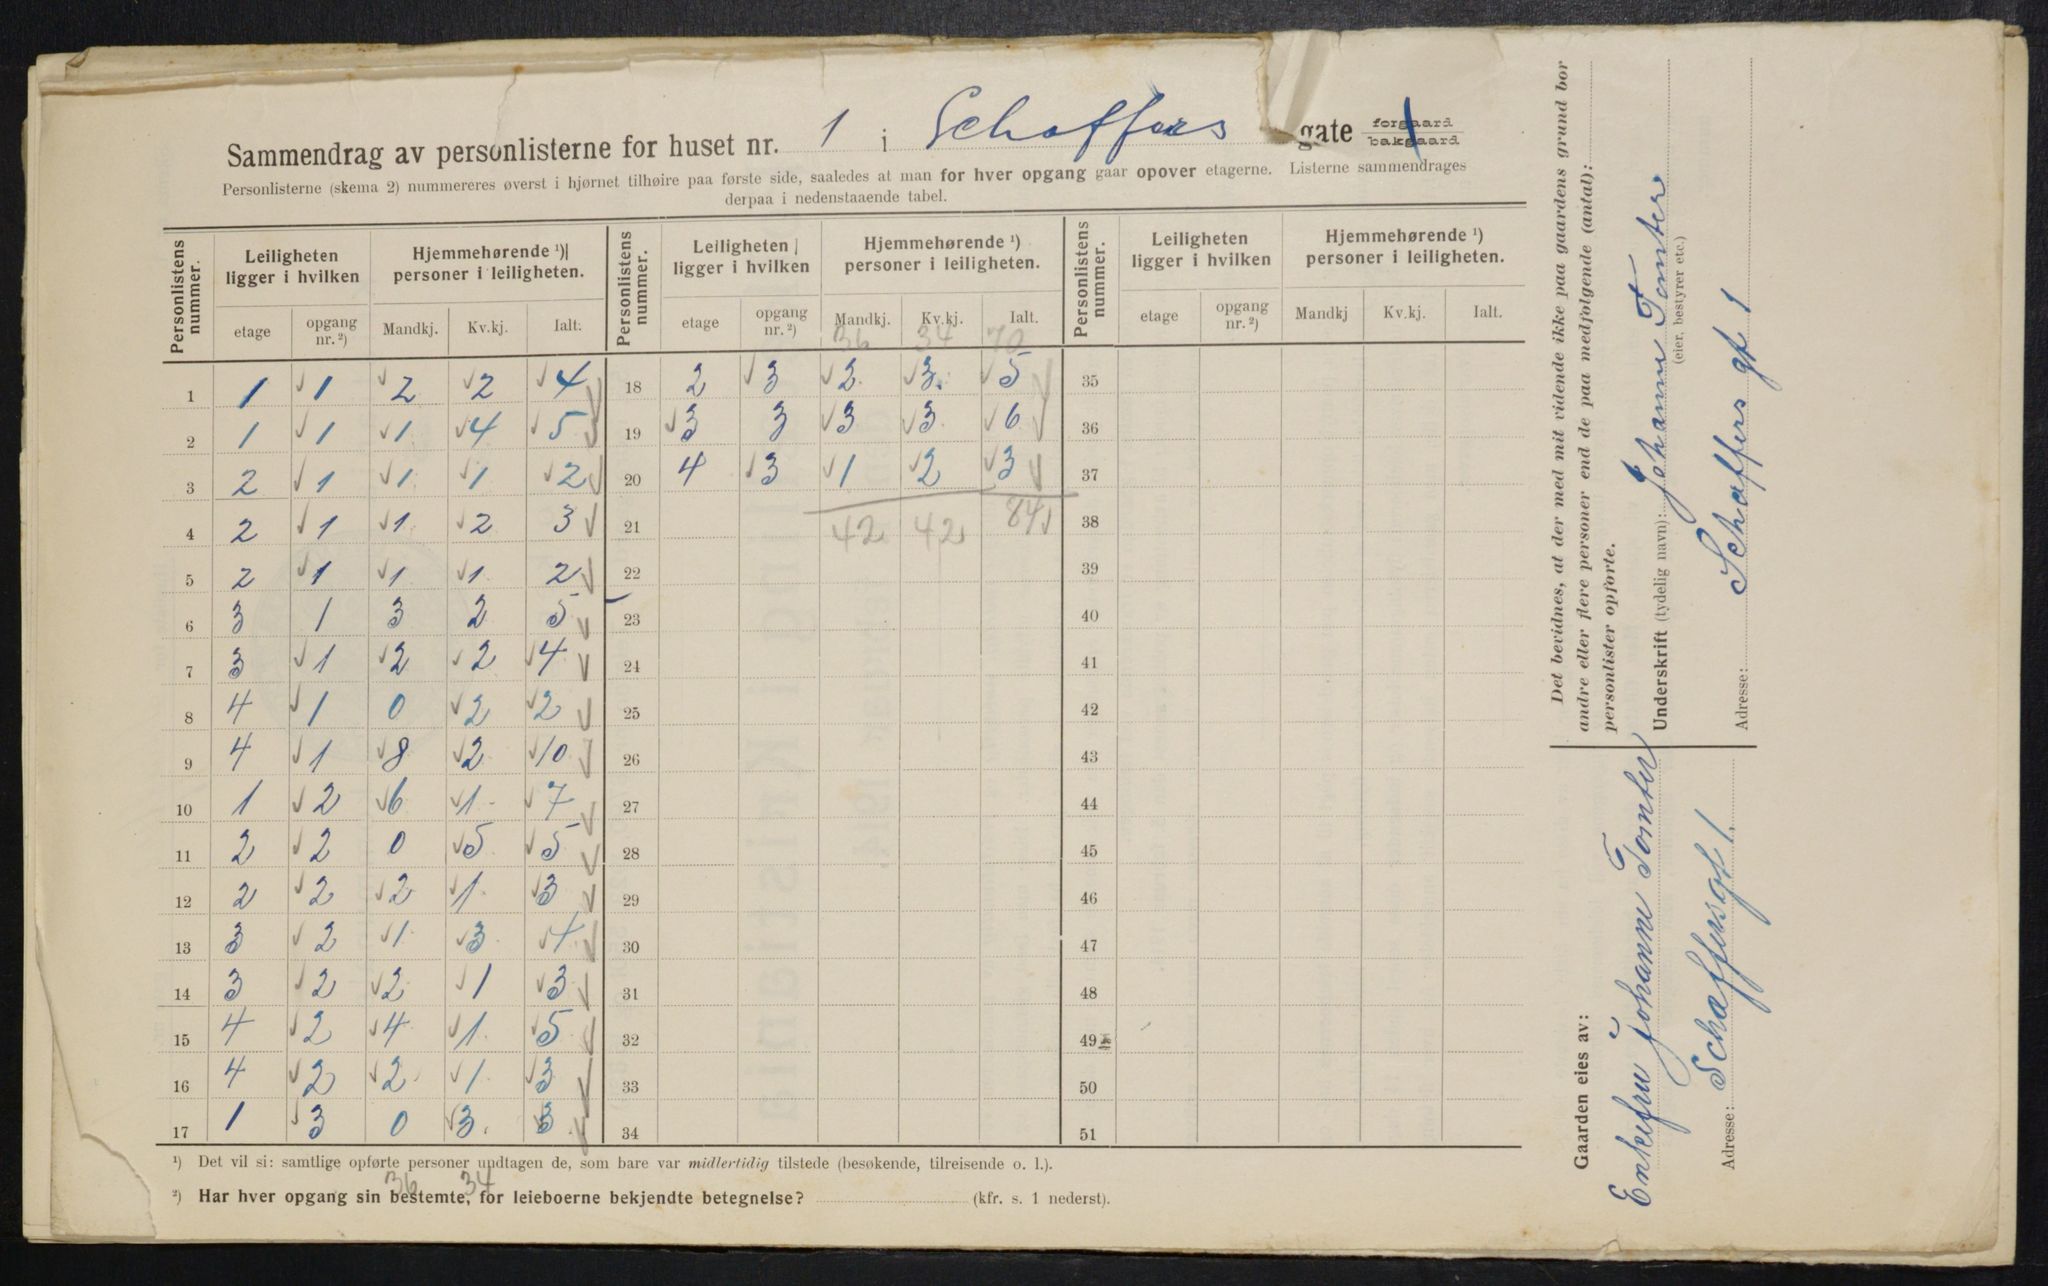 Sammendrag av personlisterne for huset nr. 1 i Schaffers gate forgaard bakgaard
Personlisterne (skema 2) nummereres øverst i hjørnet tilhøire paa første side, saaledes at man for hver opgang gaar opover etagerne. Listerne sammendrages
derpaa i nedenstaaende tabel.
Personlistens nummer. Leiligheten ligger i hvilken Hjemmehørende ¹) personer i leiligheten. Personlistens nummer. Leiligheten ligger i hvilken Hjemmehørende ¹) personer i leiligheten. Personlistens nummer. Leiligheten ligger i hvilken Hjemmehørende ¹) personer i leiligheten.
etage opgang nr.²) Mandkj. Kv.kj. Ialt. etage opgang nr.²) Mandkj. Kv.kj. Ialt. etage opgang nr.²) Mandkj Kv.kj. Ialt.
36 34 70
1 1 1 2 2 4 18 2 3 2 3 5 35
2 1 1 1 4 5 19 3 3 3 3 6 36
3 2 1 1 1 2 20 4 3 1 2 3 37
4 2 1 1 2 3 21 42 42 84 38
5 2 1 1 1 2 22 39
6 3 1 3 2 5 23 40
7 3 1 2 2 4 24 41
8 4 1 0 2 2 25 42
9 4 1 8 2 10 26 43
10 1 2 6 1 7 27 44
11 2 2 0 5 5 28 45
12 2 2 2 1 3 29 46
13 3 2 1 3 4 30 47
14 3 2 2 1 3 31 48
15 4 2 4 1 5 32 49
16 4 2 2 1 3 33 50
17 1 3 0 3 3 34 51
¹) Det vil si: samtlige opførte personer undtagen de, som bare var midlertidig tilstede (besøkende, tilreisende o. l.).
36 34
²) Har hver opgang sin bestemte, for leieboerne bekjendte betegnelse? (kfr. s. 1 nederst).
Det bevidnes, at der med mit vidende ikke paa gaardens grund bor
andre eller flere personer end de paa medfølgende (antal):
personlister opførte.
Underskrift (tydelig navn): Johanne Tomter
(eier, bestyrer etc.)
Adresse: Schaffers gt 1
Gaarden eies av:
Enkefru Johanne Tomter
Adresse: Schaffersgt 1.